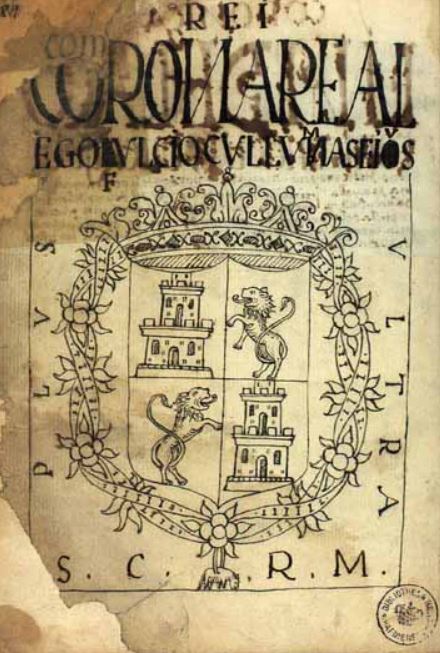 REI
CORONA REAL
EGO FVLCIO CVLLVMNAS EIOS
F
PLVS
VLTRA
S. C. R. M.